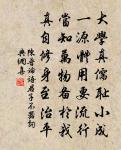 大學真儒恥小成
一源體用要流行
當知萬物备於我
真自修身至治平
陳普論語君子不器